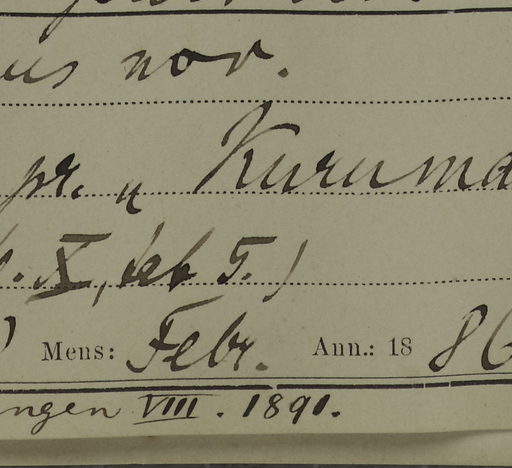 us nov.
pr. u Kuruma
. X, tab 5.)
Mens: Febr. Ann.: 18 86
ngen VIII. 1891.